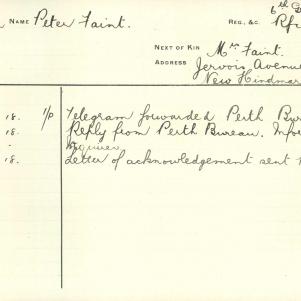 6th
NAME Peter Faint. REG. &C.
NEXT OF KIN Mrs Faint.
ADDRESS Jervois Avenue
New Hindmar
18. 1/P Telegram forwarded Perth Bur
18. Reply from Perth Bureau.
- Inquiries
18. Letter of acknowledgement sent